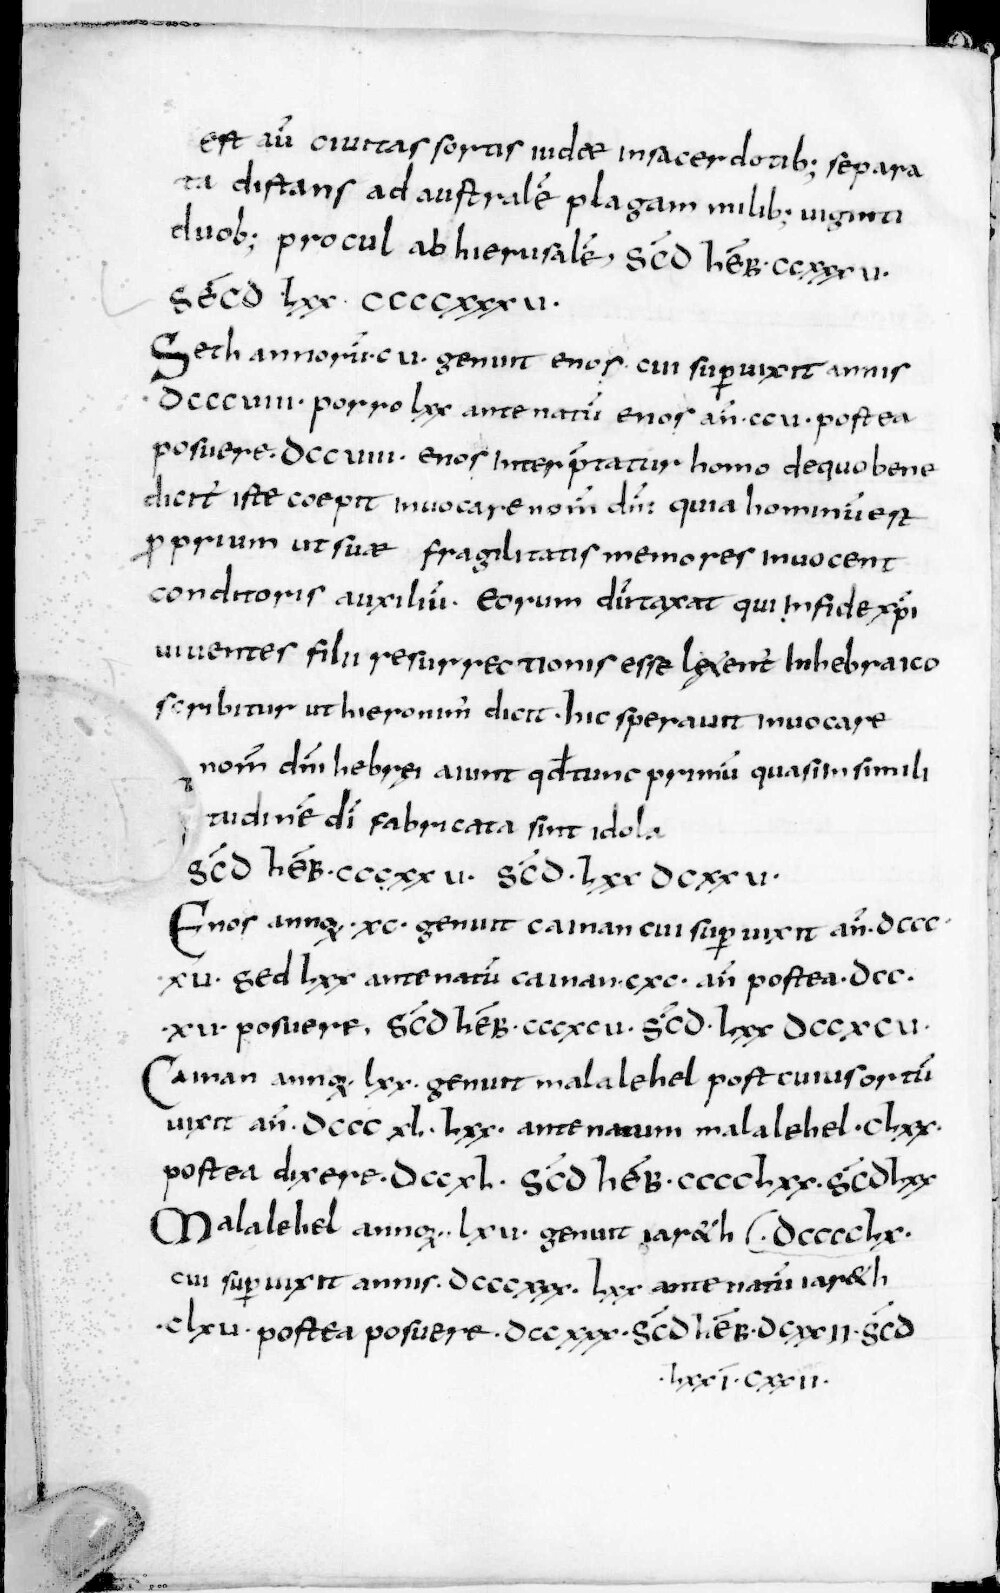 est aū ciuitas sortis iudae insacerdotib; separa
ta distans ad australē plagam milib; uiginti
duob; procul ab hierusalē, SC̄D hĒB·ccxxxv·
SĒCD lxx· ccccxxxv·
Seth annorū·cv· genuit enos· cui sup̲uixit annis
·Dcccviii· porro lxx ante natū enos an̄·ccv·postea
posuere·Dccviii· enos Interp̄tatur homo dequobene
dicit̄ iste coepit inuocare nom̄ dn̄i: quia hominū est
p̲prium ut suae fragilitatis memores inuocent
conditoris auxiliū· eorum dūtaxat qui Infide xp̄i
uiuentes filii resurrectionis esse l&xent̄ Inhebraico
scribitur ut hieronim̄ dicit·hic sperauit inuocare
nom̄ dn̄i hebrei aiunt qđ tunc primū quasi in simili
tudinē dī fabricata sint idola
SC̄D hĒB·cccxxv· SC̄D·lxx Dcxxv·
Enos annoꝝ·xc· genuit cainan cui sup̲uixit an̄·Dccc·
·xv· Sed lxx ante natū cainan·cxc· an̄ postea·Dcc·
·xv· posuere, SC̄D hĒB·cccxcv· SC̄D·lxx Dccxcv·
Cainan annoꝝ·lxx·genuit malalehel post cuius ortū
uixit an̄·Dcccxl·lxx· ante natum malalehel·clxx·
postea dixere·Dccxl· SC̄D hĒB·cccclxx·SC̄D lxx
Malalehel annoꝝ·lxv· genuit iar&h (·Dcccclx·
cui sup̲uixit annis·Dcccxxx· lxx ante natū iar&h
·clxv· postea posuere·Dccxxx·SC̄D hĒB·Dcxxii·SC̄D
·lxx ī·cxxii·